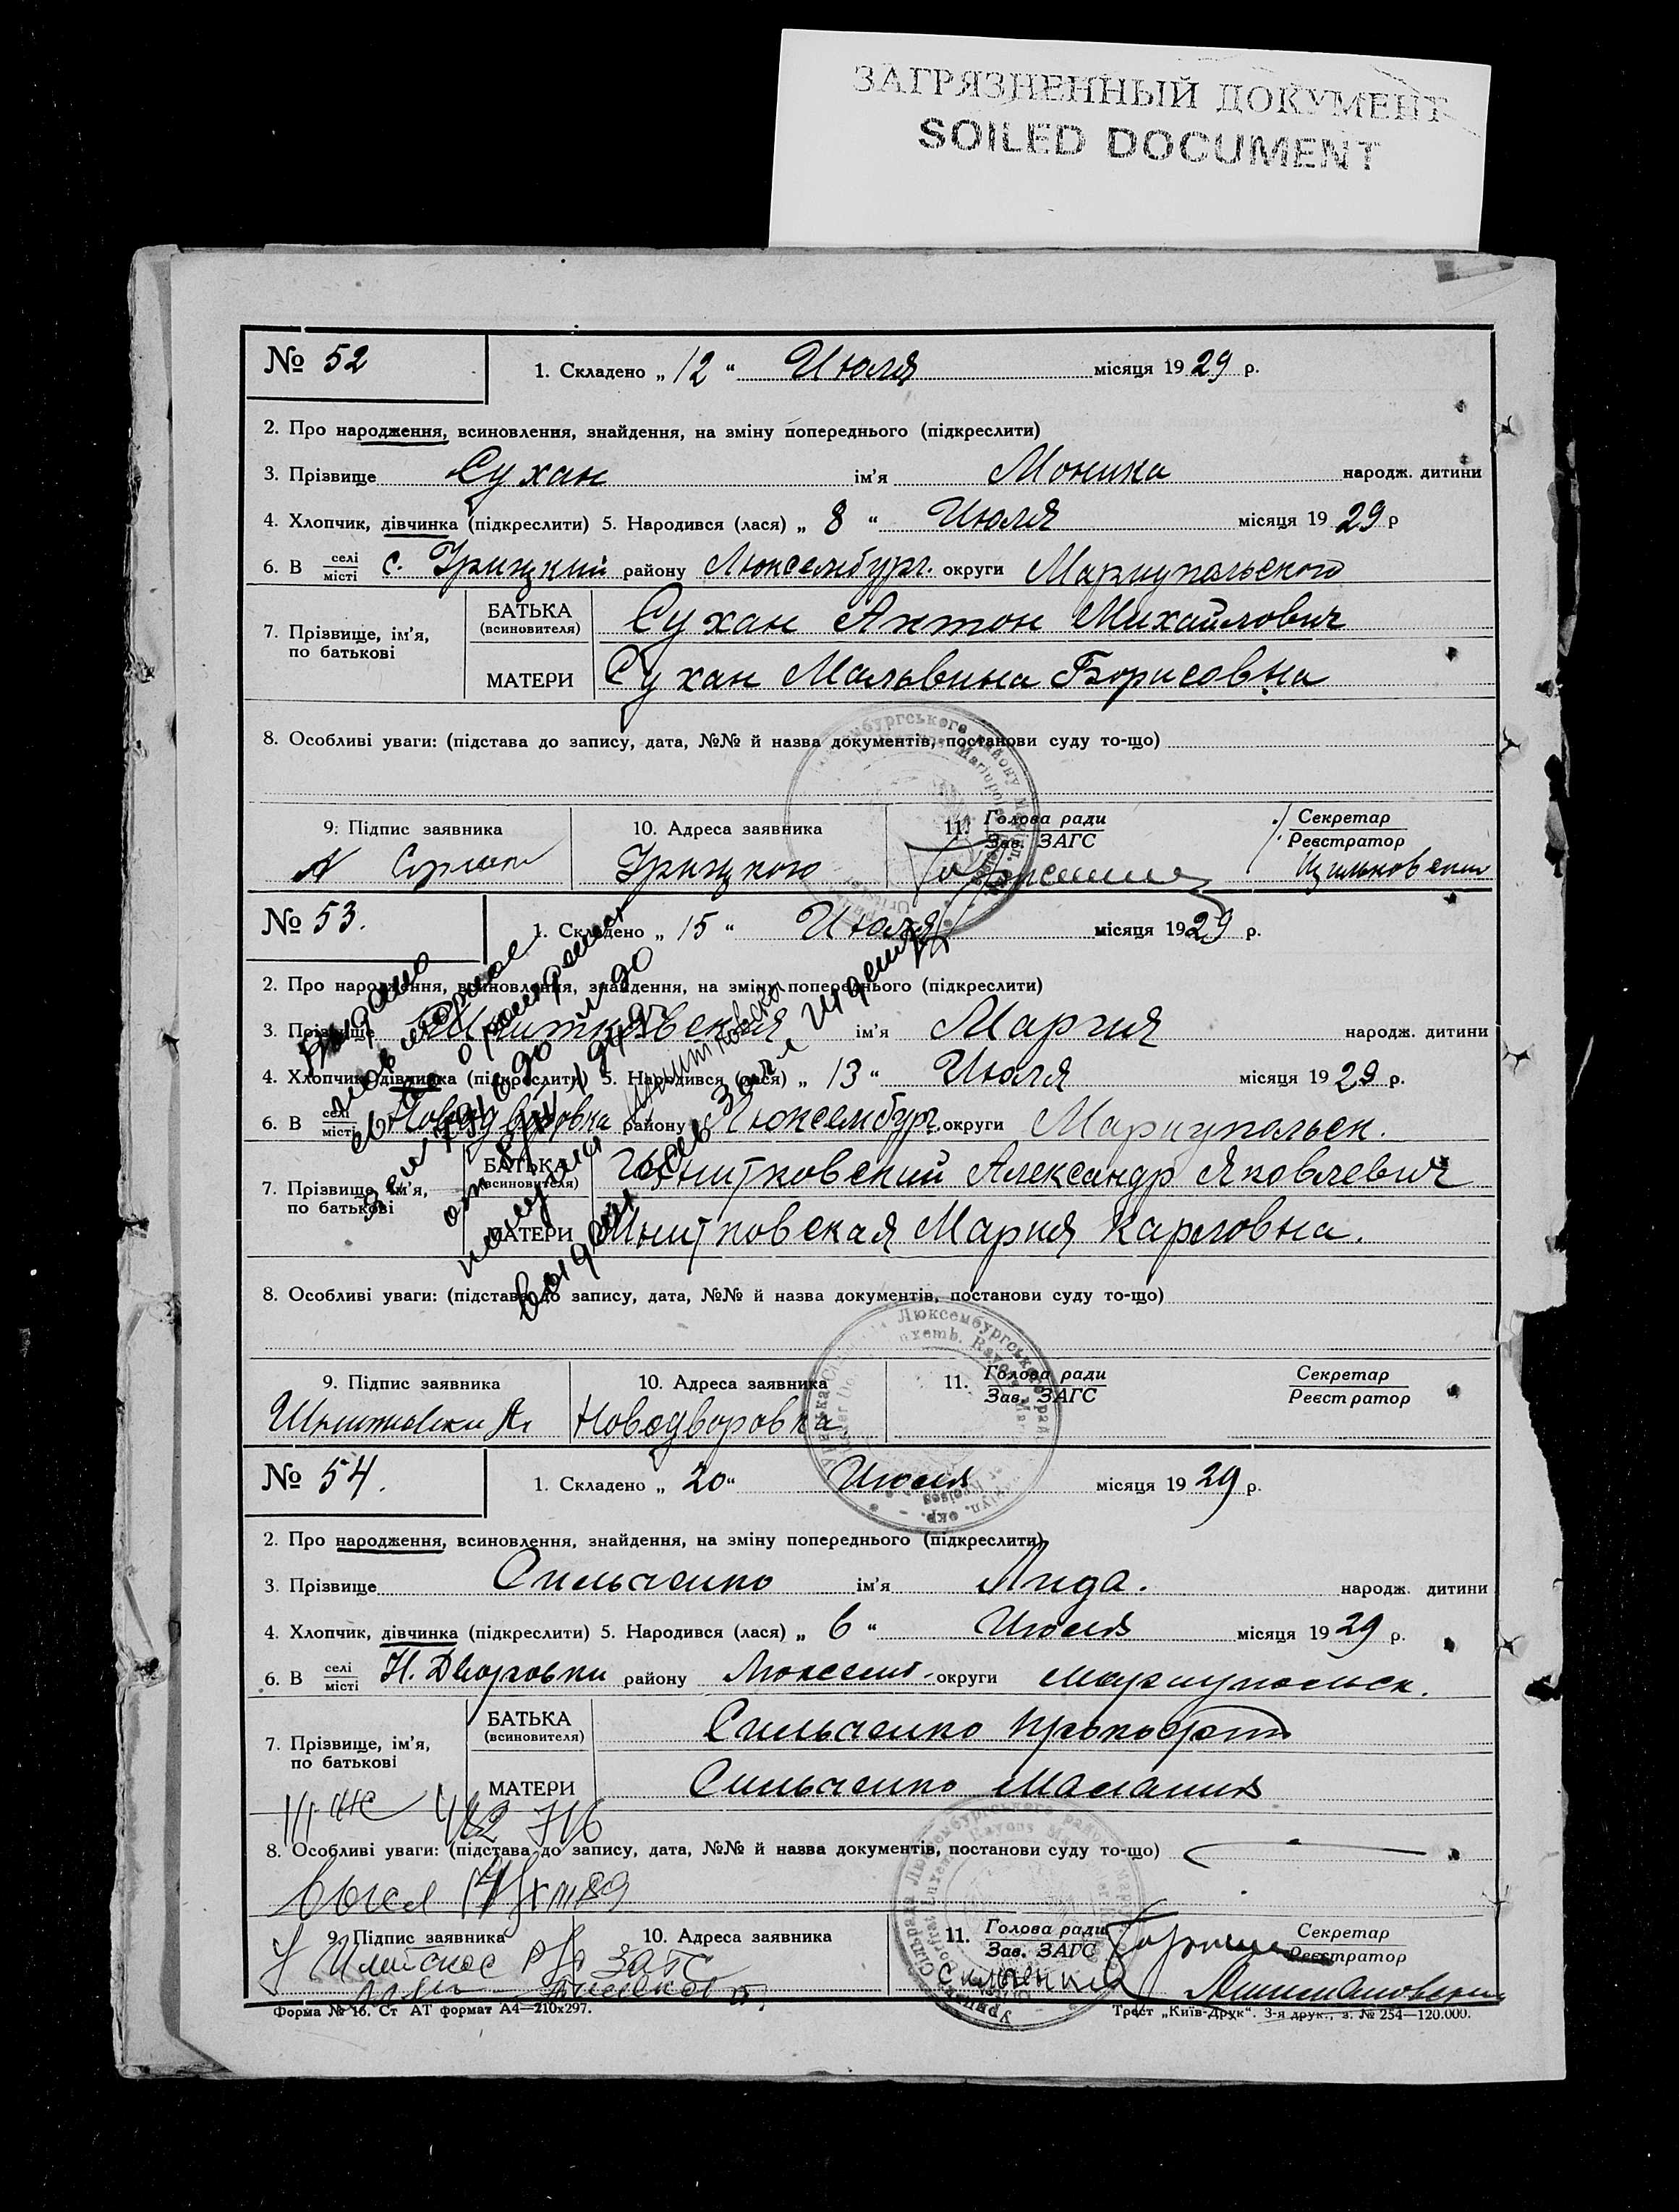 ЗАГРЯЗНЕННЫЙ ДОКУМЕНТ
SOILED DOCUMENT
№ 52
1. Складено „ 12 “ Июля місяця 19 29 р.
2. Про народження, всиновлення, знайдення, на зміну попереднього (підкреслити)
3. Прізвище Сухан ім’я Моника народж. дитини
4. Хлопчик, дівчинка (підкреслити) 5. Народився (лася) „ 8 “ Июля місяця 19 29 р
6. В селі місті с. Урицкий району Люксембург. округи Мариупольского
7. Прізвище, ім’я, по батькові
БАТЬКА (всиновителя) Сухан Антон Михайлович
МАТЕРИ Сухан Мальвина Борисовна
8. Особливі уваги: (підстава до запису, дата, №№ й назва документів, постанови суду то-що)
9. Підпис заявника
10. Адреса заявника
11. Голова ради Зав. ЗАГС
Секретар Реєстратор
А Сухан Урицкою
№ 53.
1. Складено „ 15 “ Июля місяця 19 29 р.
2. Про народження, всиновлення, знайдення, на зміну попереднього (підкреслити)
3. Прізвище Шнитковская ім’я Мария народж. дитини
4. Хлопчик, дівчинка (підкреслити) 5. Народився (лася) „ 13 “ Июля місяця 19 29 р.
6. В селі місті Новодворовка району Люксембург. округи Мариупольск.
7. Прізвище, ім’я, по батькові
БАТЬКА (всиновителя) Шнитковский Александр Яковлевич
МАТЕРИ Шнитковская Мария Карловна.
Выдано
повторное
св-во о рождении
8. Особливі уваги: (підстава до запису, дата, №№ й назва документів, постанови суду то-що)
9. Підпис заявника
10. Адреса заявника
11. Голова ради Зав. ЗАГС
Секретар Реєстратор
Новодворовка
№ 54.
1. Складено „ 20 “ Июля місяця 19 29 р.
2. Про народження, всиновлення, знайдення, на зміну попереднього (підкреслити)
3. Прізвище Сильченко ім’я Лида. народж. дитини
4. Хлопчик, дівчинка (підкреслити) 5. Народився (лася) „ 6 “ Июля місяця 19 29 р.
6. В селі місті Н. Дворовки району округи Мариупольск.
7. Прізвище, ім’я, по батькові
БАТЬКА (всиновителя) Сильченко Прокофий
МАТЕРИ Сильченко Мелания
8. Особливі уваги: (підстава до запису, дата, №№ й назва документів, постанови суду то-що)
9. Підпис заявника
10. Адреса заявника
11. Голова ради Зав. ЗАГС
Секретар Реєстратор
Сильченко
Форма № 16. Ст АТ формат А4—210х297.
Трест „Київ-Друк“. 3-я друк., з. № 254—120.000.